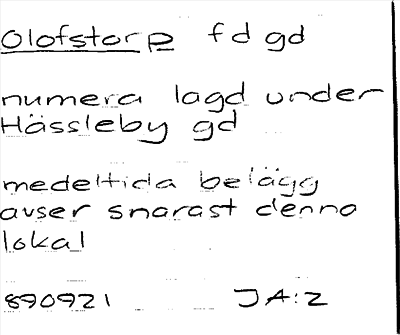 Olofstorp fd gd
numera lagd under
Hässleby gd
medeltida belägg
avser snarast denna
lokal
890921 JA:Z